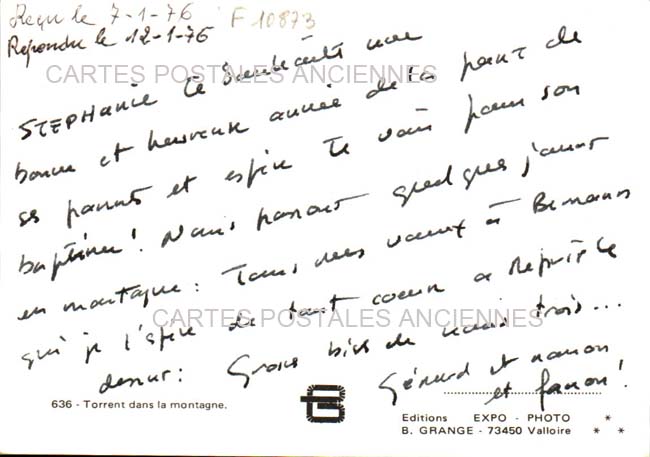 Reçu le 7-1-76 F 10873
Répondu le 12-1-76
CARTES POSTALES ANCIENNES
STEPHANIE te souhaite une
bonne et heureuse année de la part de
ses parents et espère te voir pour son
baptême! Nous passons quelques jours
en montagne: Tous nos vœux à
qui je l'espère de tout cœur a repris le
CARTES POSTALES ANCIENNES
dessus: Gros bises de nous trois...
Gérard et manon
et fanon!
636 - Torrent dans la montagne.
Editions EXPO - PHOTO *
B. GRANGE - 73450 Valloire * *